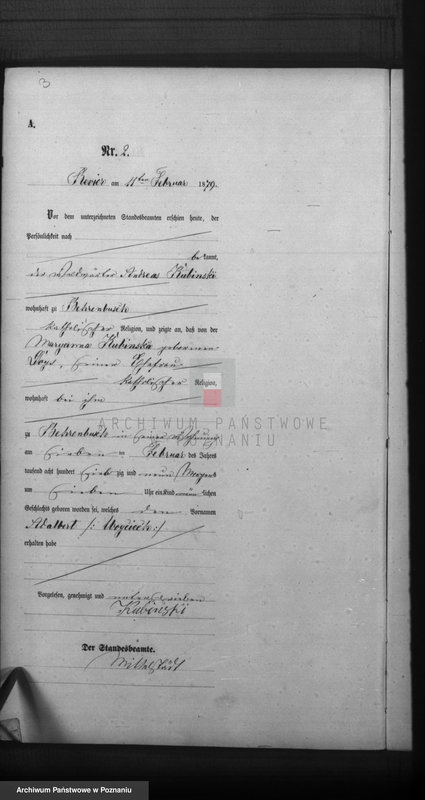 3
A.
Nr. 2.
Revier am 11ten Februar 1879.
Vor dem unterzeichneten Standesbeamten erschien heute, der
Persönlichkeit nach
bekannt,
der Waldwärter Andreas Kubinski
wohnhaft zu Behrenbusch
katholischer Religion, und zeigte an, daß von der
Maryanna Kubinska geborenen
seiner Ehefrau
katholischer Religion,
wohnhaft bei ihm
zu Behrenbusch in seiner Wohnung
am sieben ten Februar des Jahres
tausend acht hundert sieb zig und neun Morgens
um sieben Uhr ein Kind männ lichen
Geschlechts geboren worden sei, welches den Vornamen
Adalbert /: Woyciech :/
erhalten habe
Vorgelesen, genehmigt und unterschrieben
Kubinski
Der Standesbeamte.
Mittelstädt
ARCHIWUM PAŃSTWOWE
W POZNANIU
Archiwum Państwowe w Poznaniu